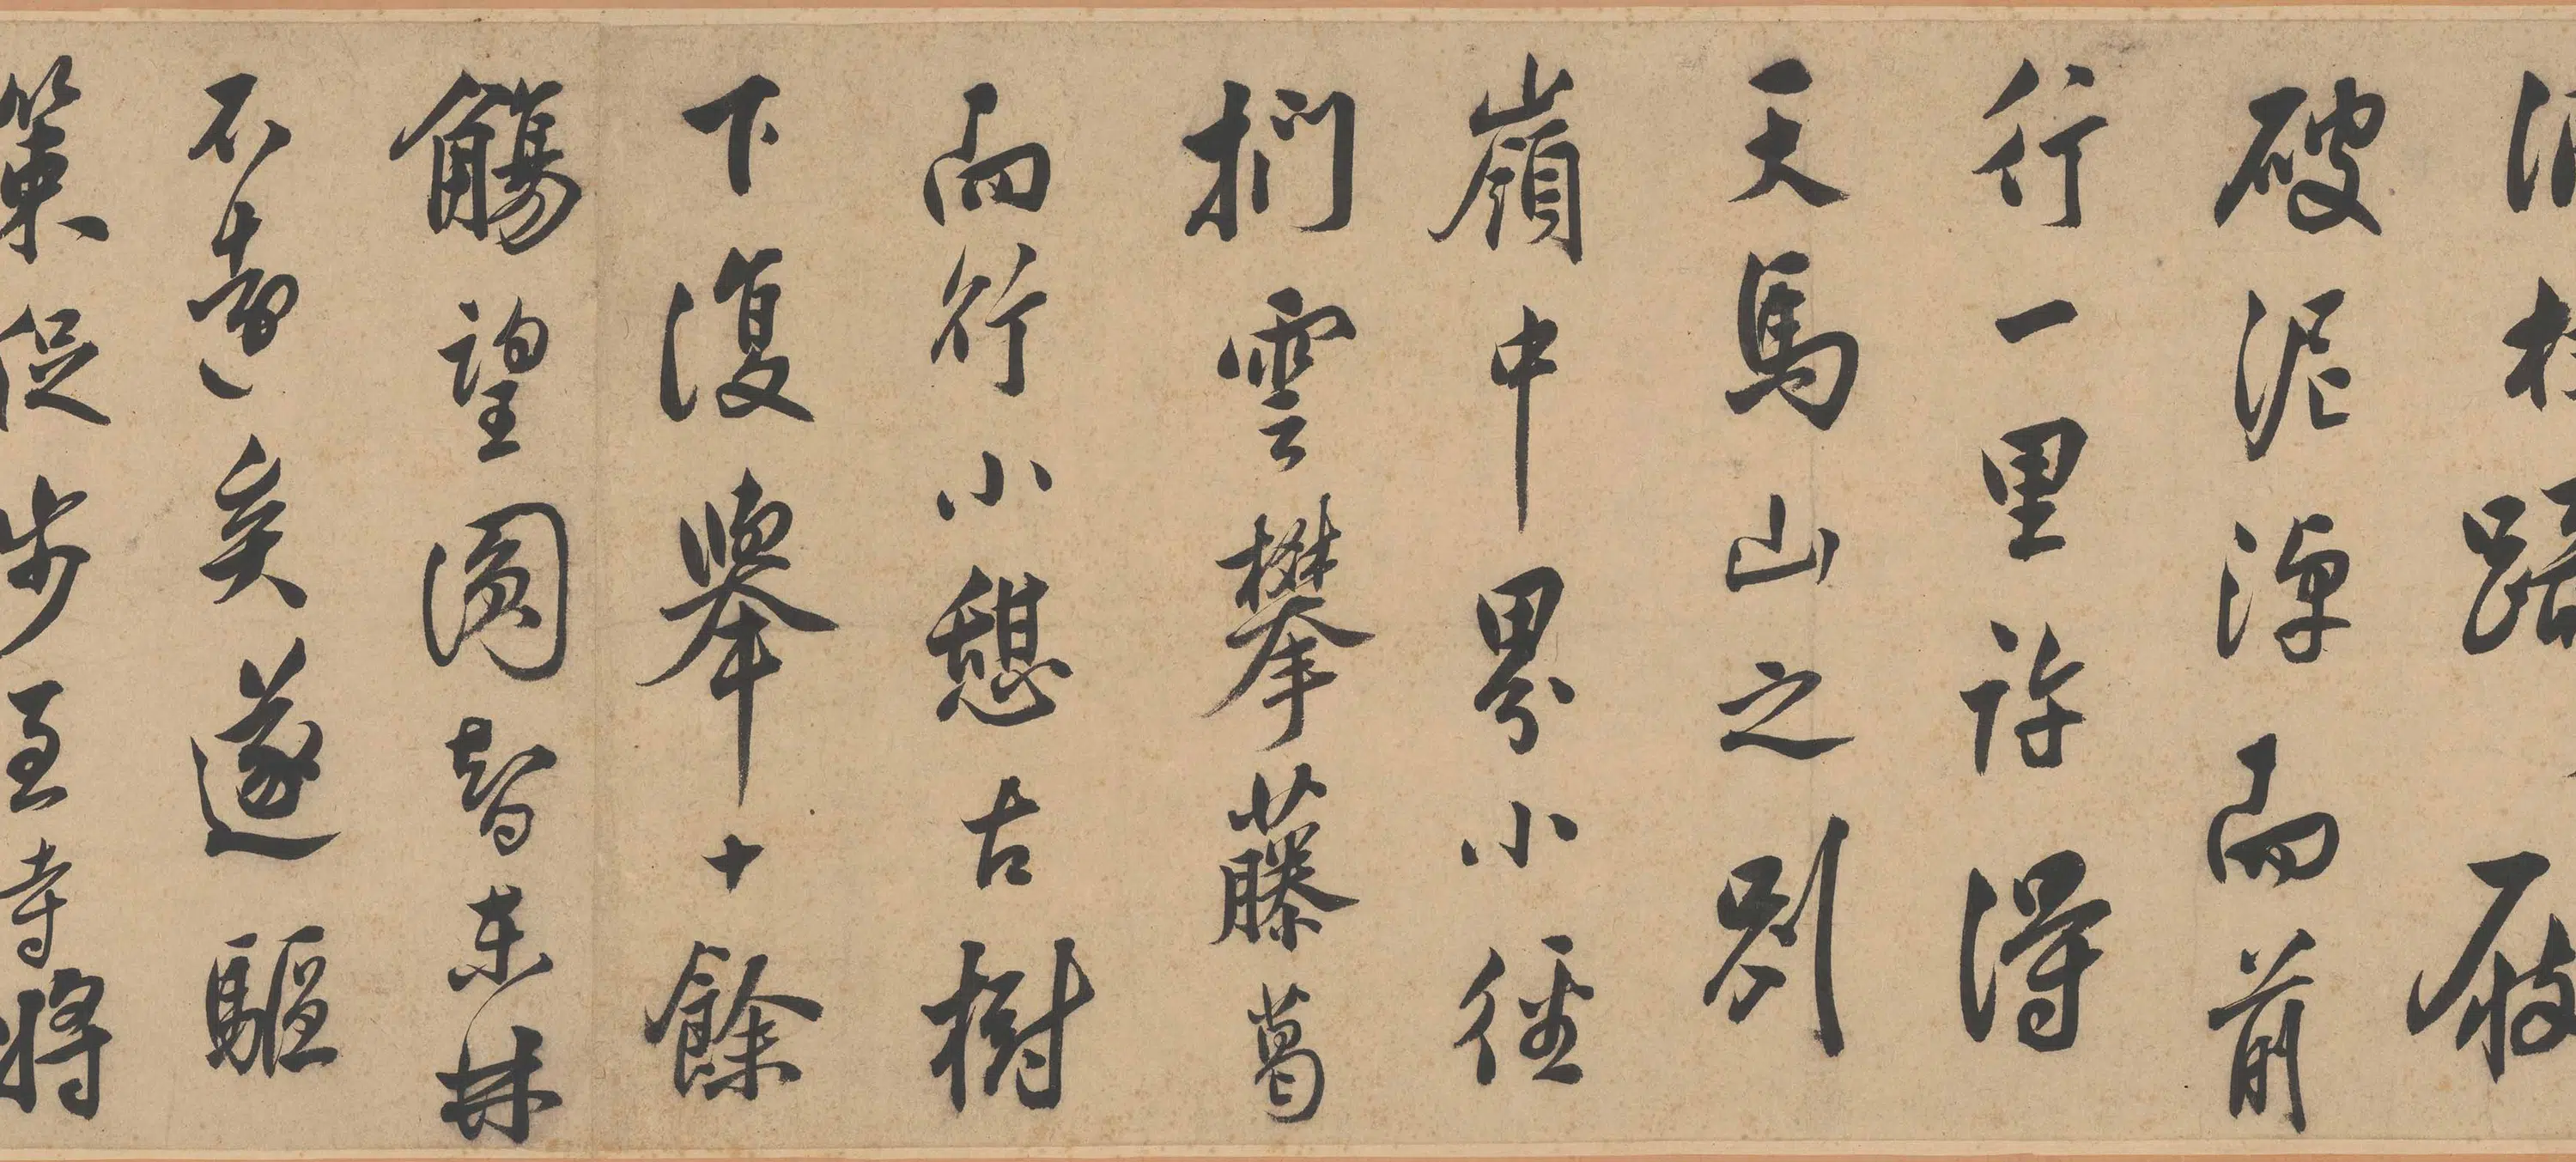 破泥淖而前
行一里許得
天馬山之別
嶺中界小徑
捫雲攀藤葛
而行小憩古樹
下復舉十餘
觴望圓智東林
不遠矣遂驅
策促步至寺將